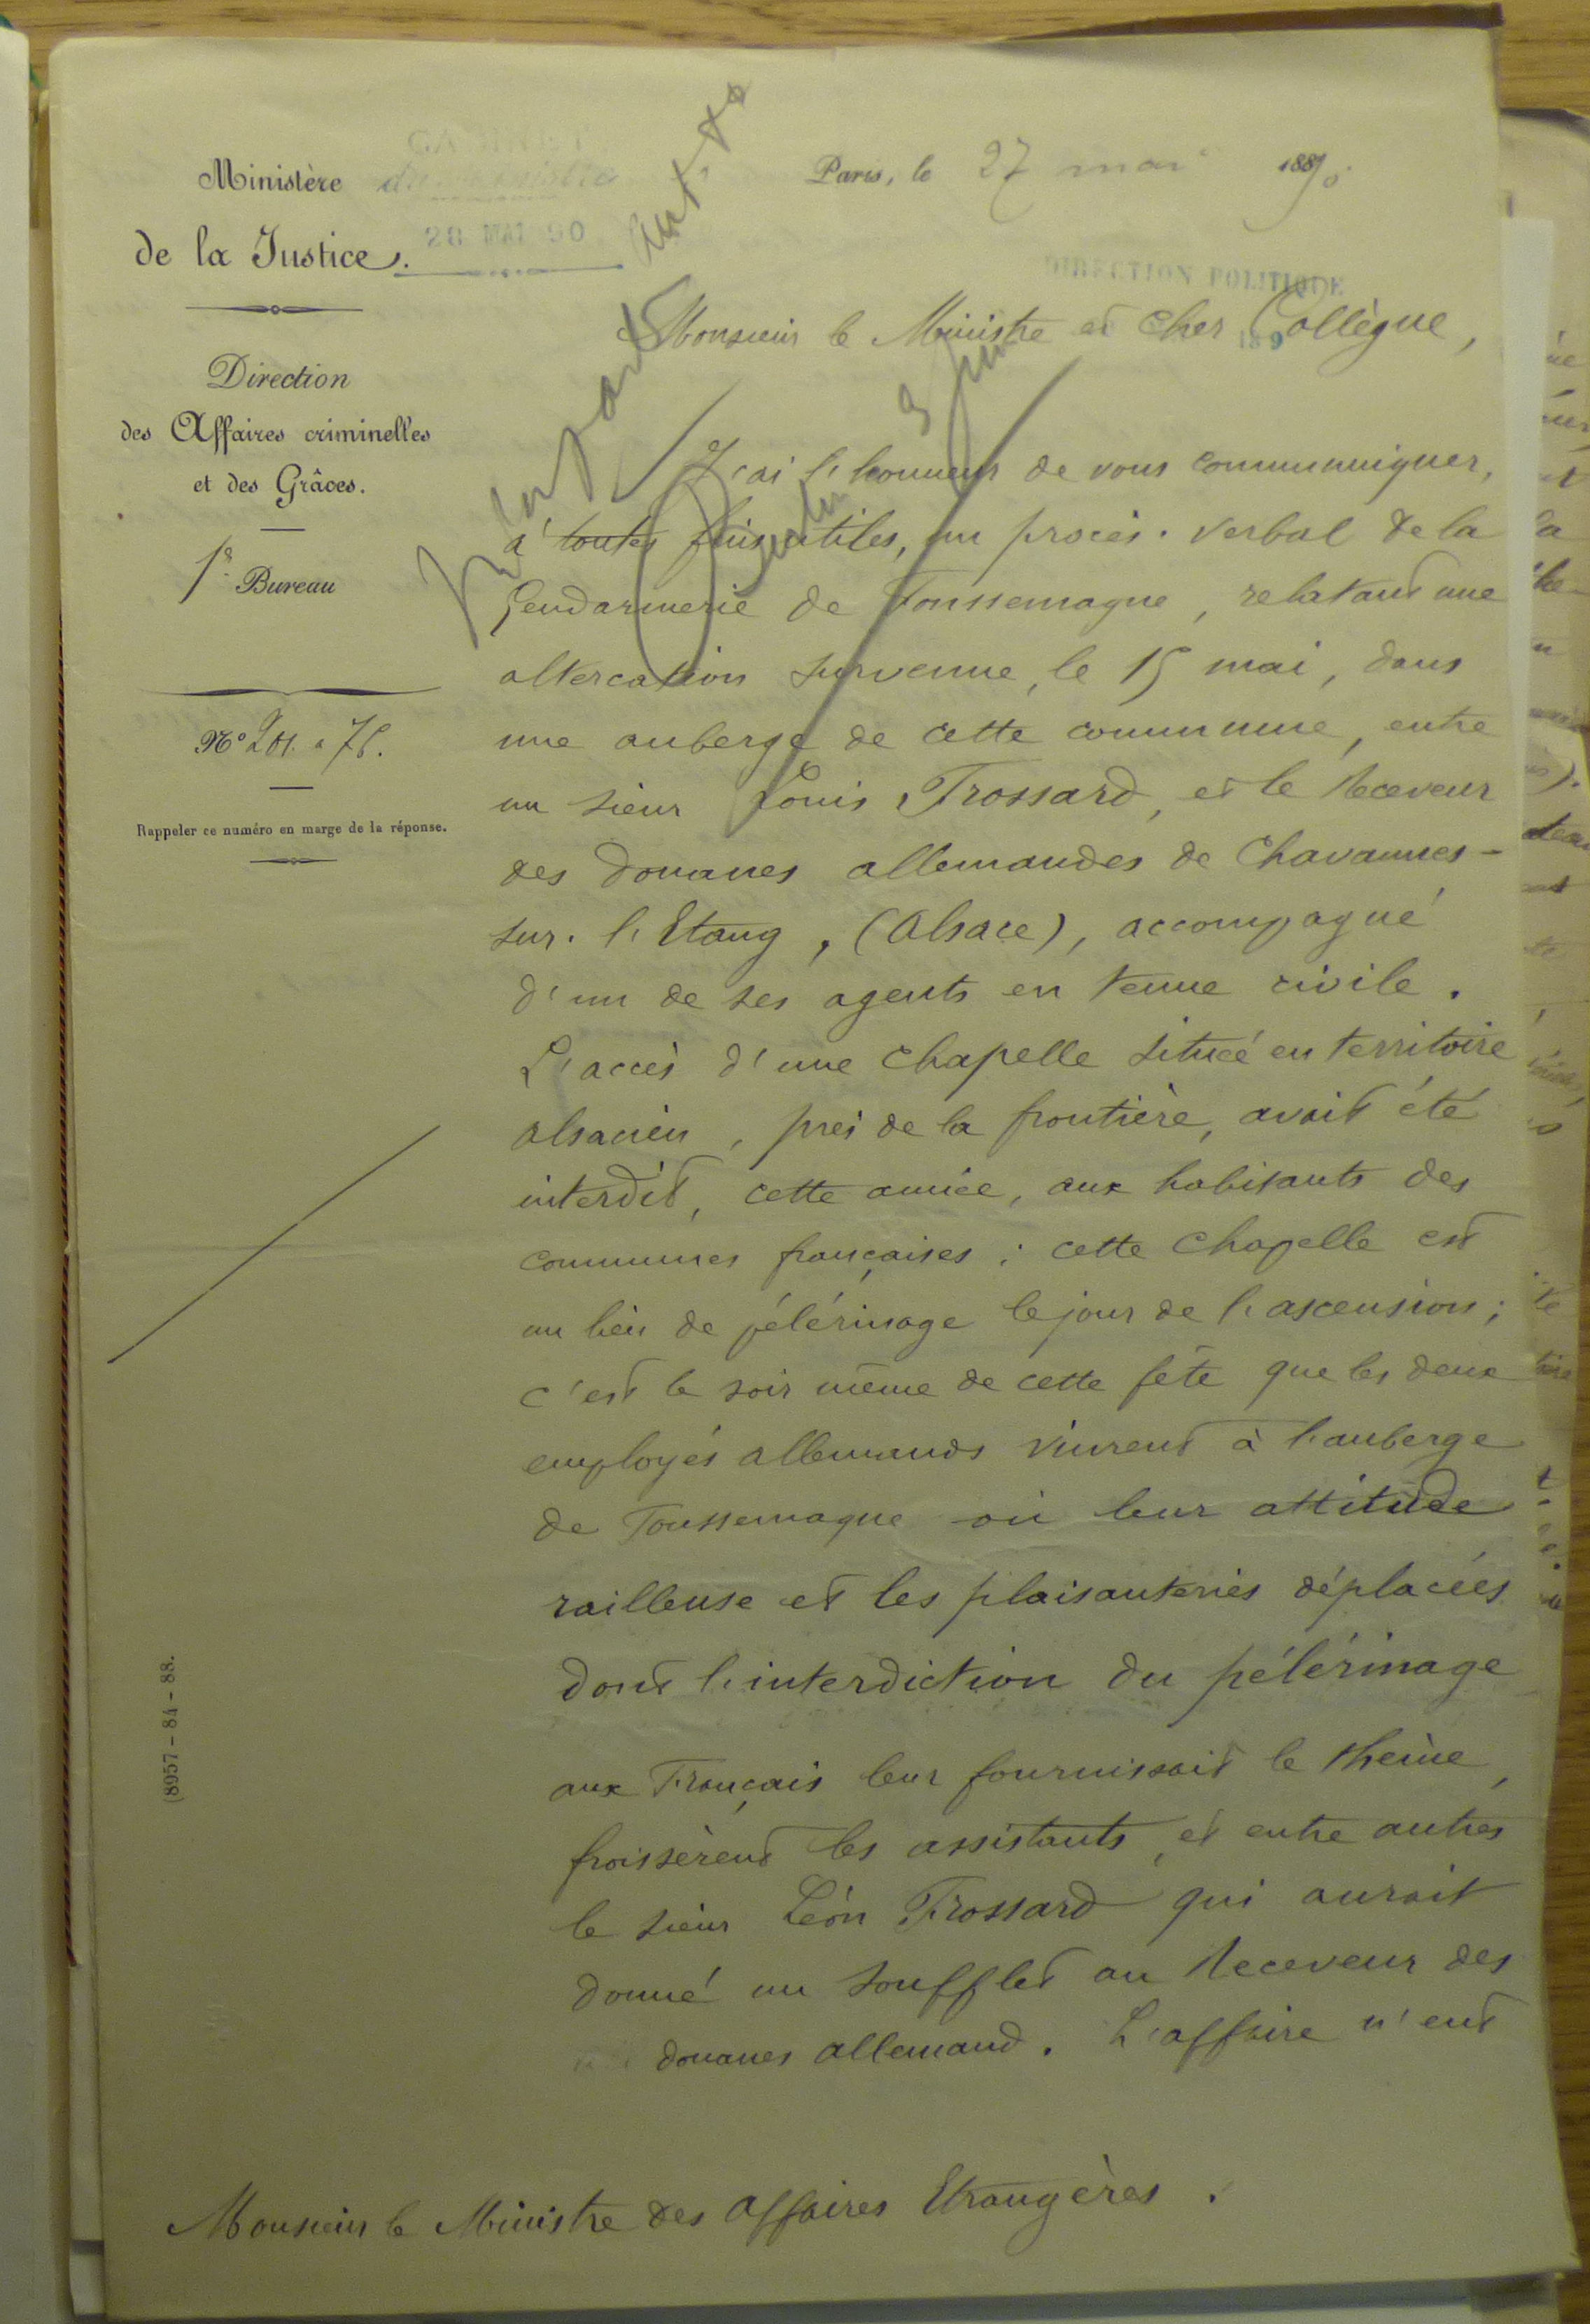 Ministère
de la Justice.
Direction
des Affaires criminelles
et des Grâces.
1er Bureau
Rappeler ce numéro en marge de la réponse.
(8957-84-88.
CABINET
du Ministre
28 MAI 90
Paris, le 27 mai 1890.
DIRECTION POLITIQUE
Monsieur le Ministre et Cher Collègue,
J'ai l'honneur de vous communiquer,
à toutes fins utiles, un procès-verbal de la
Gendarmerie de Foussemagne, relatant une
altercation survenue, le 15 mai, dans
une auberge de cette commune, entre
un sieur Louis Frossard, et le Receveur
des Douanes allemandes de Chavannes-
sur-l'Etang, (Alsace), accompagné
d'un de ses agents en tenue civile.
L'accès d'une Chapelle située en territoire
alsacien, près de la frontière, avait été
interdit, cette année, aux habitants des
communes françaises; cette Chapelle est
un lieu de pélérinage le jour de l'ascension;
c'est le soir même de cette fête que les deux
employés allemands vinrent à l'auberge
de Foussemagne où leur attitude
railleuse et les plaisanteries déplacées
dont l'interdiction du pélérinage
aux Français leur fournissait le thème,
froissèrent les assistants, et entre autres
le sieur Léon Frossard qui aurait
donné un soufflet au Receveur des
douanes allemand. L'affaire n'eut
Monsieur le Ministre des Affaires Etrangères.